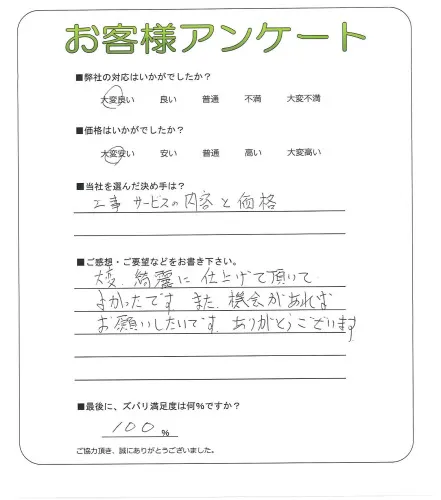 お客様アンケート
■弊社の対応はいかがでしたか？
大変良い 良い 普通 不満 大変不満
■価格はいかがでしたか？
大変安い 安い 普通 高い 大変高い
■当社を選んだ決め手は？
工事サービスの内容と価格
■ご感想・ご要望などをお書き下さい。
大変、綺麗に仕上げて頂いて
よかったです。また、機会があれば
お願いしたいです。ありがとうございます
■最後に、ズバリ満足度は何%ですか？
100%
ご協力頂き、誠にありがとうございました。